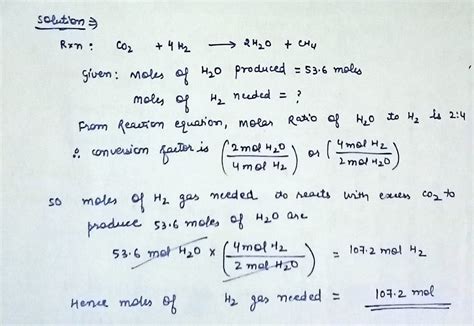 Solution ⇒
Rxn : CO₂ + 4H₂ ⟶ 2H₂O + CH₄
Given : Moles of H₂O produced = 53.6 moles
moles of H₂ needed = ?
From Reaction equation, molar Ratio of H₂O to H₂ is 2:4
∴ conversion factor is (2 mol H₂O / 4 mol H₂) or (4 mol H₂ / 2 mol H₂O)
so moles of H₂ gas needed to reacts with excess CO₂ to
produce 53.6 moles of H₂O are
53.6 mol H₂O × (4 mol H₂ / 2 mol H₂O) = 107.2 mol H₂
Hence moles of H₂ gas needed = 107.2 mol